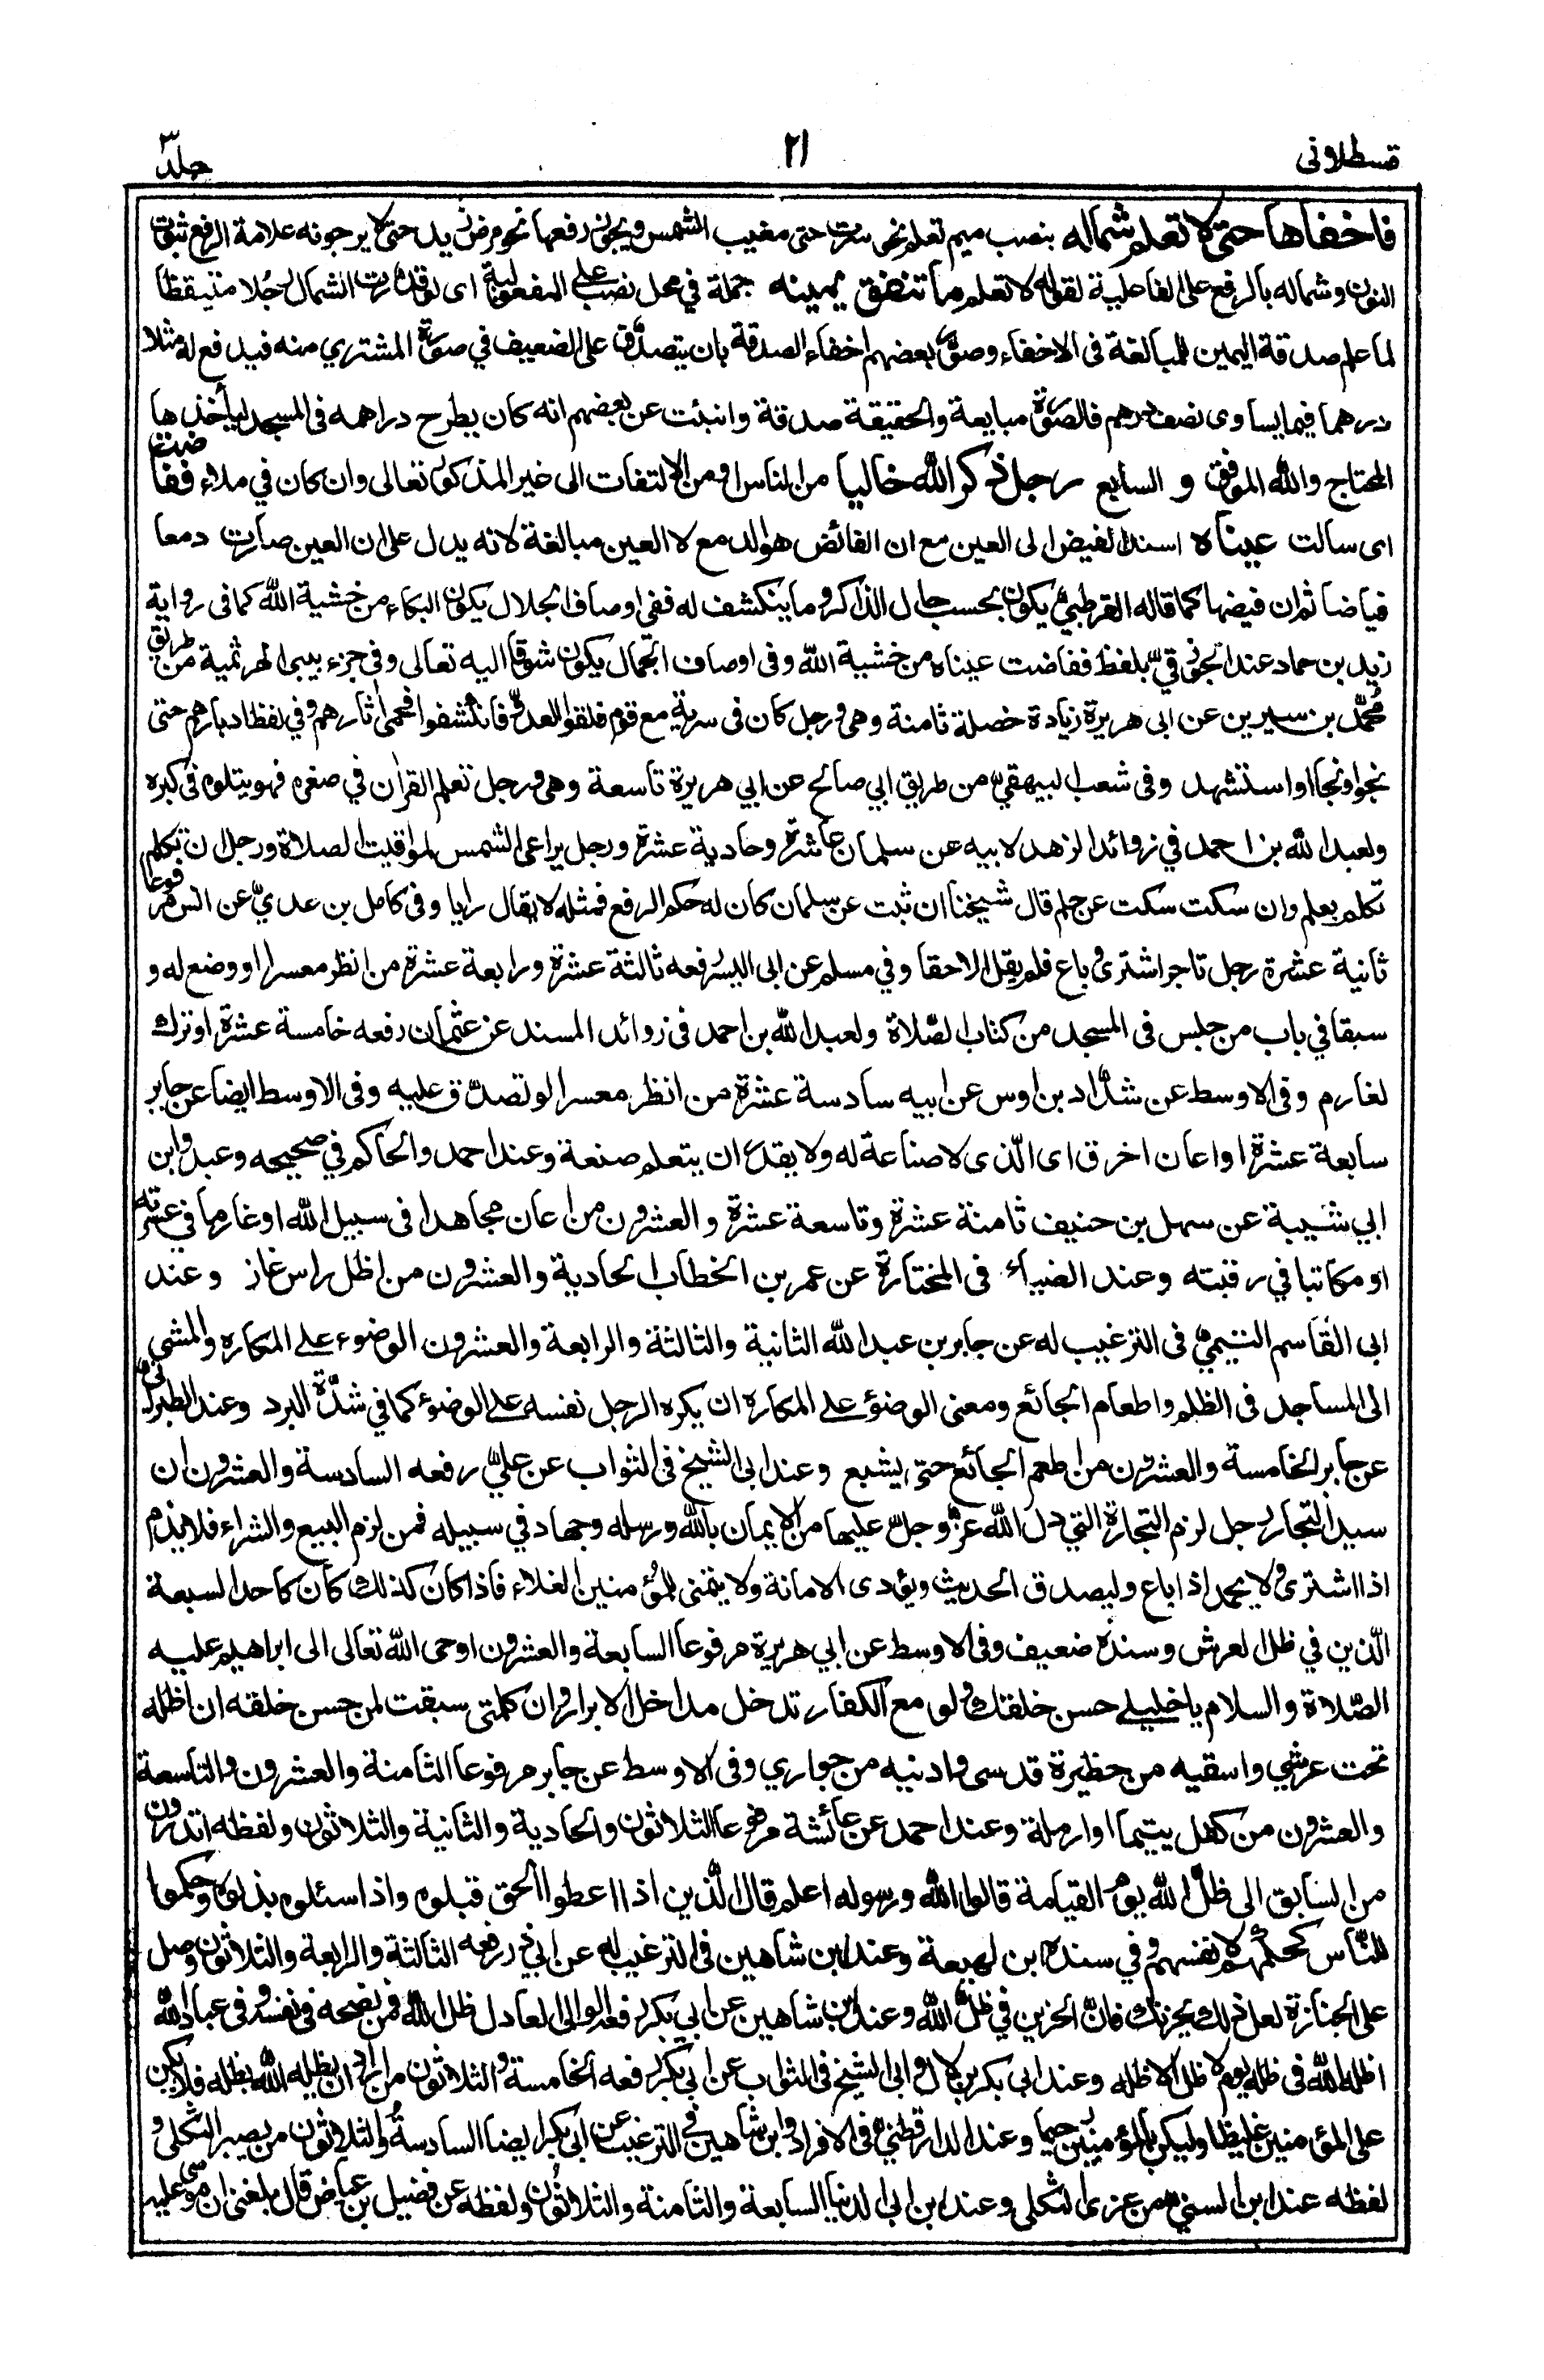 قسطلانى
٢١
جلد ٣
فاخفاها حتى لا تعلم شماله بنصب ميم تعلم نحو سرت حتى مغيب الشمس ويجوز رفعها نحو مرض زيد حتى لا يرجونه علامة الرفع ثبوت
النون وشماله بالرفع على الفاعلية لقوله لا تعلم ما تنفق يمينه جملة في محل نصب على المفعولية اى لو قدرت الشمال رجلا متيقظا
لما علم صدقة اليمين للمبالغة فى الاخفاء وصور بعضهم اخفاء الصدقة بان يتصدق على الضعيف في صورة المشتري منه فيدفع له مثلا
درهما فيما يساوى نصف درهم فالصورة مبايعة والحقيقة صدقة وانبئت عن بعضهم انه كان يطرح دراهمه فى المسجد ليأخذها
المحتاج والله الموفق و السابع رجل ذكر الله خاليا من الناس او من الالتفات الى غير المذكور تعالى وان كان في ملاء ففاضت
اى سالت عيناه اسند الفيض الى العين مع ان الفائض هو الدمع لا العين مبالغة لانه يدل على ان العين صارت دمعا
فياضا ثم ان فيضها كما قاله القرطبي يكون بحسب حال الذاكر وما ينكشف له ففى اوصاف الجلال يكون البكاء من خشية الله كما فى رواية
زيد بن حماد عند الجوزقيّ بلفظ ففاضت عيناه من خشية الله وفى اوصاف الجمال يكون شوقا اليه تعالى وفى جزء بيبى الهرثمية من طريق
محمّد بن سيرين عن ابى هريرة زيادة خصلة ثامنة وهى ورجل كان فى سرية مع قوم فلقوا العدو فانكشفوا فحمى اثارهم وفي لفظ ادبارهم حتى
نجوا ونجا او استشهد وفى شعب البيهقيّ من طريق ابي صالح عن ابي هريرة تاسعة وهى ورجل تعلم القران في صغره فهو يتلوه فى كبره
ولعبد الله بن احمد في زوائد الزهد لابيه عن سلمان عاشرة وحادية عشرة ورجل يراعى الشمس لمواقيت الصلاة ورجل ان تكلم
تكلم بعلم وان سكت سكت عن حلم قال شيخنا ان ثبت عن سلمان كان له حكم الرفع فمثله لا يقال رايا وفى كامل بن عديّ عن انس مرفوعا
ثانية عشرة رجل تاجر اشترى وباع فلم يقل الا حقا وفي مسلم عن ابى اليسر رفعه ثالثة عشرة ورابعة عشرة من انظر معسرا او وضع له و
سبقا في باب من جلس فى المسجد من كتاب الصّلاة ولعبد الله بن احمد فى زوائد المسند عن عثمان رفعه خامسة عشرة او ترك
لغارم وفى الاوسط عن شدّاد بن اوس عن ابيه سادسة عشرة من انظر معسرا او تصدّق عليه وفى الاوسط ايضا عن جابر
سابعة عشرة او اعان اخرق اى الّذى لا صناعة له ولا يقدر ان يتعلم صنعة وعند احمد والحاكم في صحيحه وعبد وابن
ابي شيبة عن سهل بن حنيف ثامنة عشرة وتاسعة عشرة والعشرون من اعان مجاهدا فى سبيل الله او غارما في عسرته
او مكاتبا في رقبته وعند الضياء فى المختارة عن عمر بن الخطاب الحادية والعشرون من اظل راس غاز وعند
ابى القاسم التيمي فى الترغيب له عن جابر بن عبد الله الثانية والثالثة والرابعة والعشرون الوضوء على المكاره والمشى
الى المساجد فى الظلم واطعام الجائع ومعنى الوضوء على المكاره ان يكره الرجل نفسه على الوضوء كما في شدّة البرد وعند الطبرانى
عن جابر الخامسة والعشرون من اطعم الجائع حتى يشبع وعند ابى الشيخ فى الثواب عن عليّ رفعه السادسة والعشرون ان
سيد التجار رجل لزم التجارة التي دل الله عزّ وجلّ عليها من الايمان بالله ورسله وجهاد في سبيله فمن لزم البيع والشراء فلا يذم
اذا اشترى ولا يحمد اذا باع وليصدق الحديث ويؤدى الامانة ولا يتمنى للمؤمنين الغلاء فاذا كان كذلك كان كاحد السبعة
الّذين في ظل العرش وسنده ضعيف وفى الاوسط عن ابي هريرة مرفوعا السابعة والعشرون اوحى الله تعالى الى ابراهيم عليه
الصّلاة والسلام يا خليلي حسن خلقك ولو مع الكفار تدخل مداخل الابرار وان كلمتى سبقت لمن حسن خلقه ان اظله
تحت عرشي واسقيه من حظيرة قدسى وادنيه من جواري وفى الاوسط عن جابر مرفوعا الثامنة والعشرون والتاسعة
والعشرون من كفل يتيما او ارملة وعند احمد عن عائشة مرفوعا الثلاثون والحادية والثانية والثلاثون ولفظه اتدرون
من السابق الى ظلّ الله يوم القيامة قالوا الله ورسوله اعلم قال الّذين اذا اعطوا الحق قبلوه واذا سئلوه بذلوه وحكموا
للنّاس كحكمهم لانفسهم وفي سنده ابن لهيعة وعند ابن شاهين فى الترغيب له عن ابي ذر رفعه الثالثة والرابعة والثلاثون وصل
على الجنازة لعل ذلك يحزنك فانّ الحزين في ظلّ الله وعند ابن شاهين عن ابي بكر رفعه الوالى العادل ظل الله فمن نصحه فى نفسه وفى عباد الله
اظله الله فى ظله يوم لا ظل الا ظله وعند ابى بكر بن لال وابى الشيخ فى الثواب عن ابي بكر رفعه الخامسة والثلاثون من اراد ان يظله الله بظله فلا يكن
على المؤمنين غليظا وليكن بالمؤمنين رحيما وعند الدارقطني فى الافراد وابن شاهين فى الترغيب عن ابى بكر ايضا السادسة والثلاثون من يصبر الثكلى و
لفظه عند ابن السني من عزى الثكلى وعند ابن ابى الدنيا السابعة والثامنة والثلاثون ولفظه عن فضيل بن عياض قال بلغنى ان موسى عليه